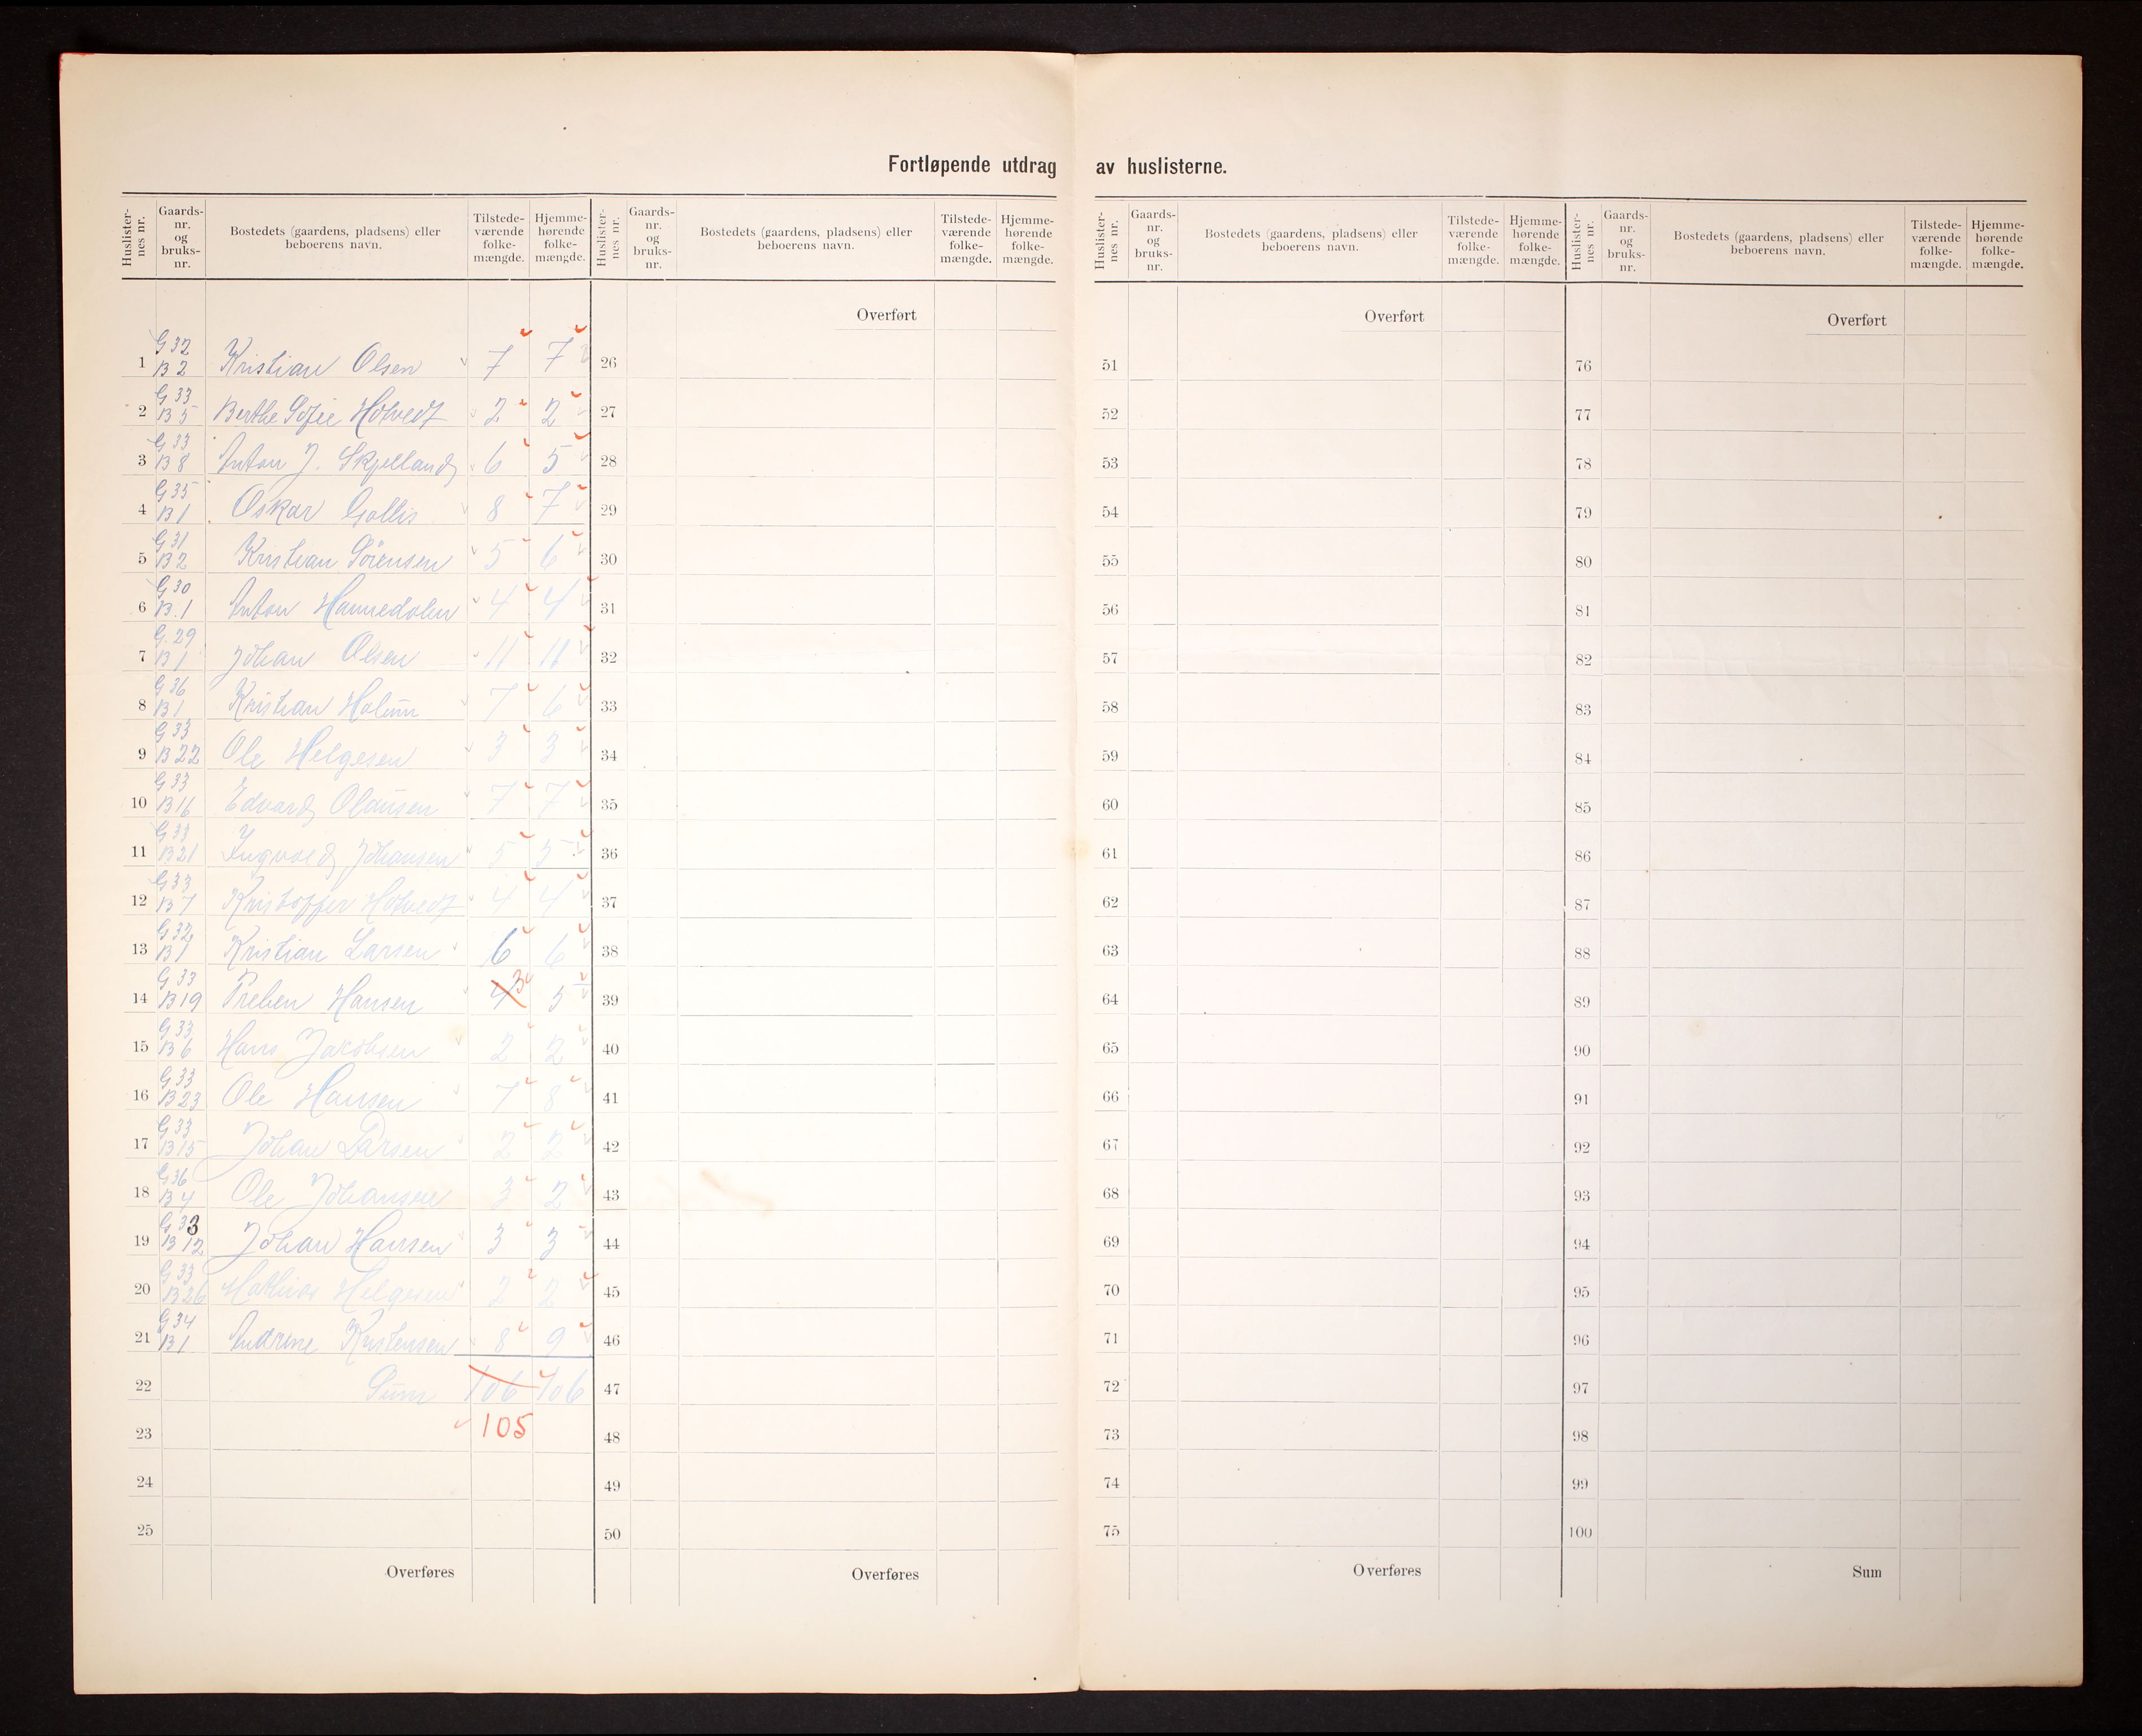 Fortløpende utdrag av huslisterne.
Huslister-nes nr. Gaards-nr. og bruks-nr. Bostedets (gaardens, pladsens) eller beboerens navn. Tilstede-værende folke-mængde. Hjemme-hørende folke-mængde.
1 G 32 B 2 Kristian Olsen 7 7
2 G 33 B 5 Berthe Sofie Hotvedt 2 2
3 G 33 B 8 Anton J. Skjelland 6 5
4 G 35 B 1 Oskar Gallis 8 7
5 G 31 B 2 Kristian Sörensen 5 6
6 G 30 B. 1 Anton Hannedalen 4 4
7 G. 29 B 1 Johan Olsen 11 11
8 G 36 B 1 Kristian Holum 7 6
9 G 33 B 22 Ole Helgesen 3 3
10 G 33 B 16 Edvard Olausen 7 7
11 G 33 B 21 Ingvald Johansen 5 5
12 G 33 B 7 Kristoffer Hotvedt 4 4
13 G 32 B 1 Kristian Larsen 6 6
14 G 33 B 19 Preben Hansen 4 3 5
15 G 33 B 6 Hans Jakobsen 2 2
16 G 33 B 23 Ole Hansen 7 8
17 G 33 B 15 Johan Larsen 2 2
18 G 36 B 4 Ole Johansen 3 2
19 G 33 B 12 Johan Hansen 3 3
20 G 33 B 26 Mathias Helgesen 2 2
21 G 34 B 1 Andrine Kristensen 8 9
22 Sum 106 106
23 105
24
25
Overføres
Huslister-nes nr. Gaards-nr. og bruks-nr. Bostedets (gaardens, pladsens) eller beboerens navn. Tilstede-værende folke-mængde. Hjemme-hørende folke-mængde.
Overført
26
27
28
29
30
31
32
33
34
35
36
37
38
39
40
41
42
43
44
45
46
47
48
49
50
Overføres
Huslister-nes nr. Gaards-nr. og bruks-nr. Bostedets (gaardens, pladsens) eller beboerens navn. Tilstede-værende folke-mængde. Hjemme-hørende folke-mængde.
Overført
51
52
53
54
55
56
57
58
59
60
61
62
63
64
65
66
67
68
69
70
71
72
73
74
75
Overføres
Huslister-nes nr. Gaards-nr. og bruks-nr. Bostedets (gaardens, pladsens) eller beboerens navn. Tilstede-værende folke-mængde. Hjemme-hørende folke-mængde.
Overført
76
77
78
79
80
81
82
83
84
85
86
87
88
89
90
91
92
93
94
95
96
97
98
99
100
Sum